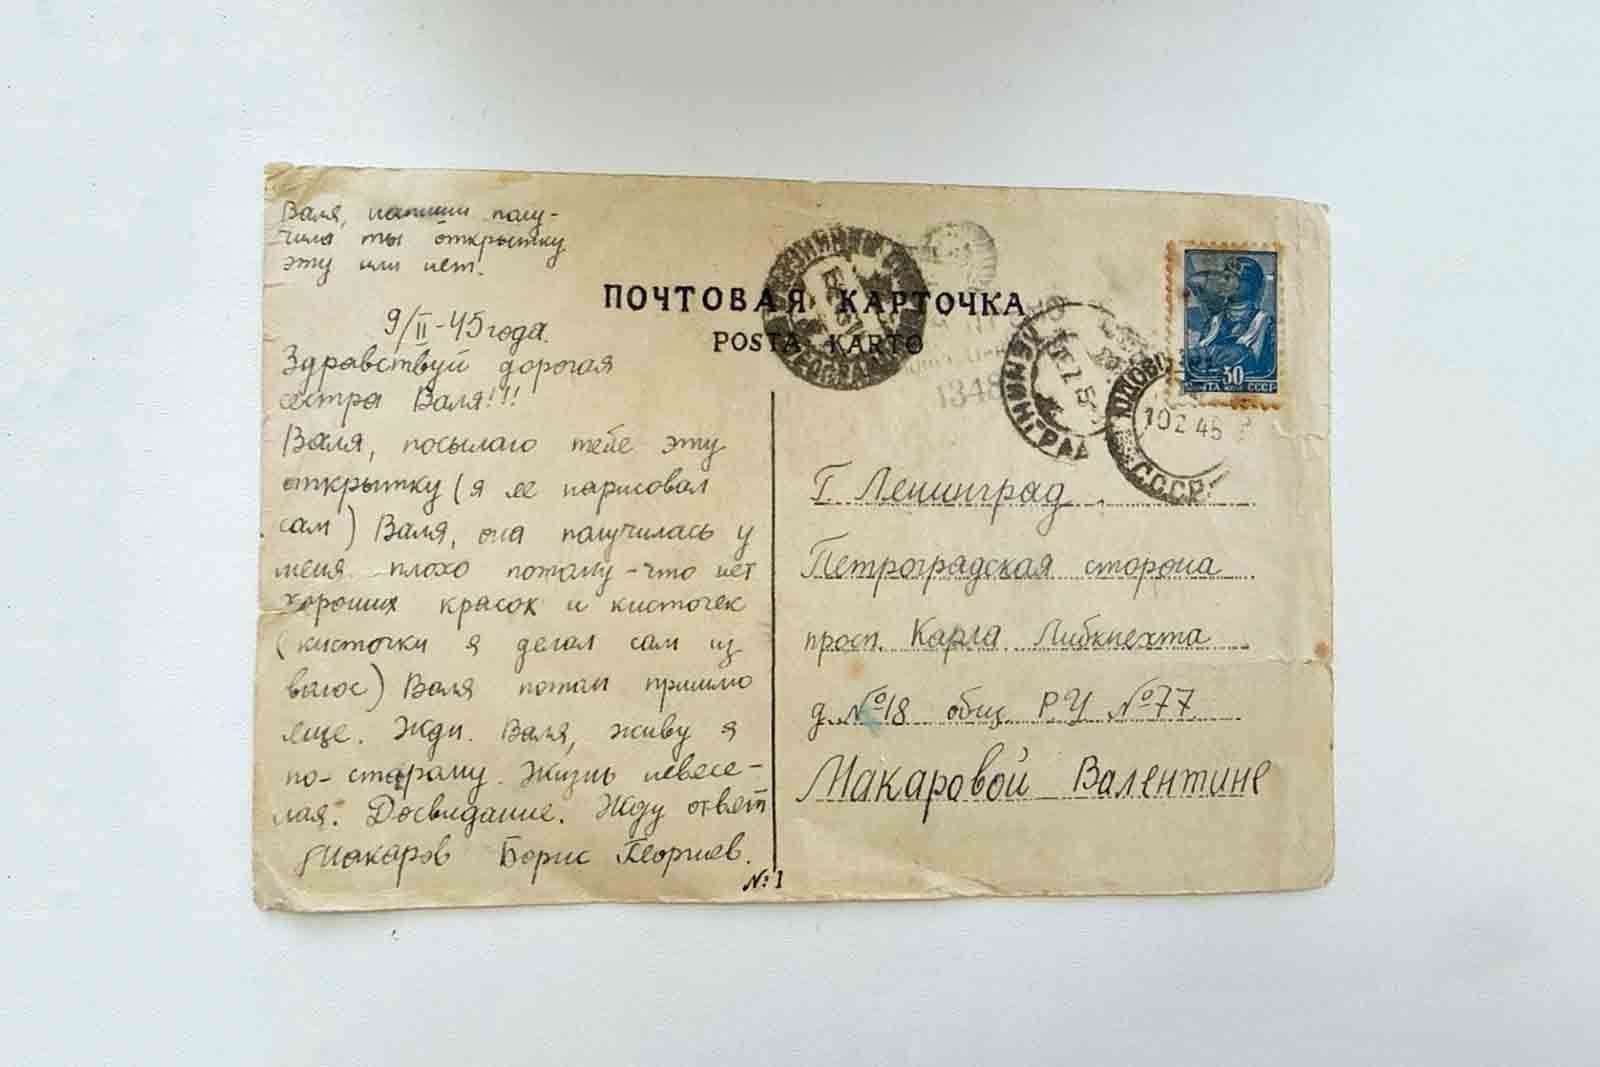 Валя, напиши полу-
чила ты открытку
эту или нет.
9/II-45 года.
Здравствуй дорогая
сестра Валя!!!
Валя, посылаю тебе эту
открытку (я ее нарисовал
сам) Валя, она получилась у
меня плохо потому-что нет
хороших красок и кисточек
(кисточки я делал сам из
волос) Валя потом пришлю
еще. Жди. Валя, живу я
по-старому. Жизнь невесе-
лая. Досвидание. Жду ответ
Макаров Борис Георгиев.
№1
ПОЧТОВАЯ КАРТОЧКА
POSTA KARTO
1348
ЛЕНИНГРАД
10 2 45
СССР
ПОЧТА СССР
30
Г. Ленинград
Петроградская сторона
просп. Карла Либкнехта
д. №18 общ РУ №77
Макаровой Валентине